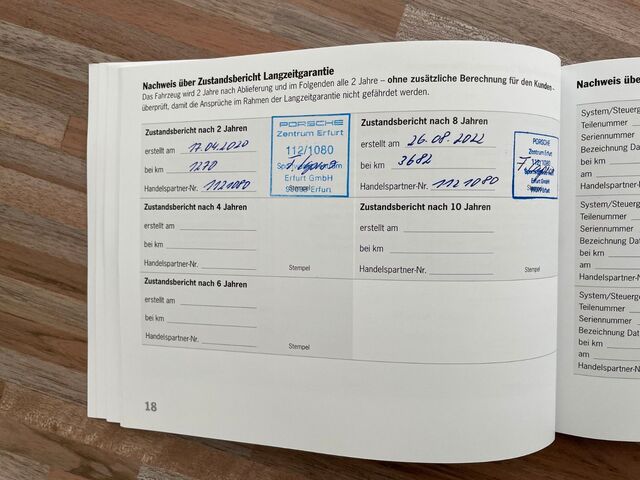 Nachweis über Zustandsbericht Langzeitgarantie
Das Fahrzeug wird 2 Jahre nach Ablieferung und im Folgenden alle 2 Jahre – ohne zusätzliche Berechnung für den Kunden –
überprüft, damit die Ansprüche im Rahmen der Langzeitgarantie nicht gefährdet werden.
Zustandsbericht nach 2 Jahren
erstellt am 17.04.2020
bei km 1270
Handelspartner-Nr. 1121080
PORSCHE
Zentrum Erfurt
112/1080
Erfurt GmbH
Erfurt
Stempel
Zustandsbericht nach 8 Jahren
erstellt am 26.08.2022
bei km 3682
Handelspartner-Nr. 1121080
PORSCHE
Zentrum Erfurt
112/1080
Erfurt GmbH
Erfurt
Zustandsbericht nach 4 Jahren
erstellt am
bei km
Handelspartner-Nr.
Stempel
Zustandsbericht nach 10 Jahren
erstellt am
bei km
Handelspartner-Nr.
Stempel
Zustandsbericht nach 6 Jahren
erstellt am
bei km
Handelspartner-Nr.
Stempel
18
Nachweis übe
System/Steuerge
Teilenummer
Seriennummer
Bezeichnung Dat
bei km
am
Handelspartner-
System/Steuerg
Teilenummer
Seriennummer
Bezeichnung Dat
bei km
am
Handelspartner-
System/Steuerg
Teilenummer
Seriennummer
Bezeichnung Dat
bei km
am
Handelspartner-